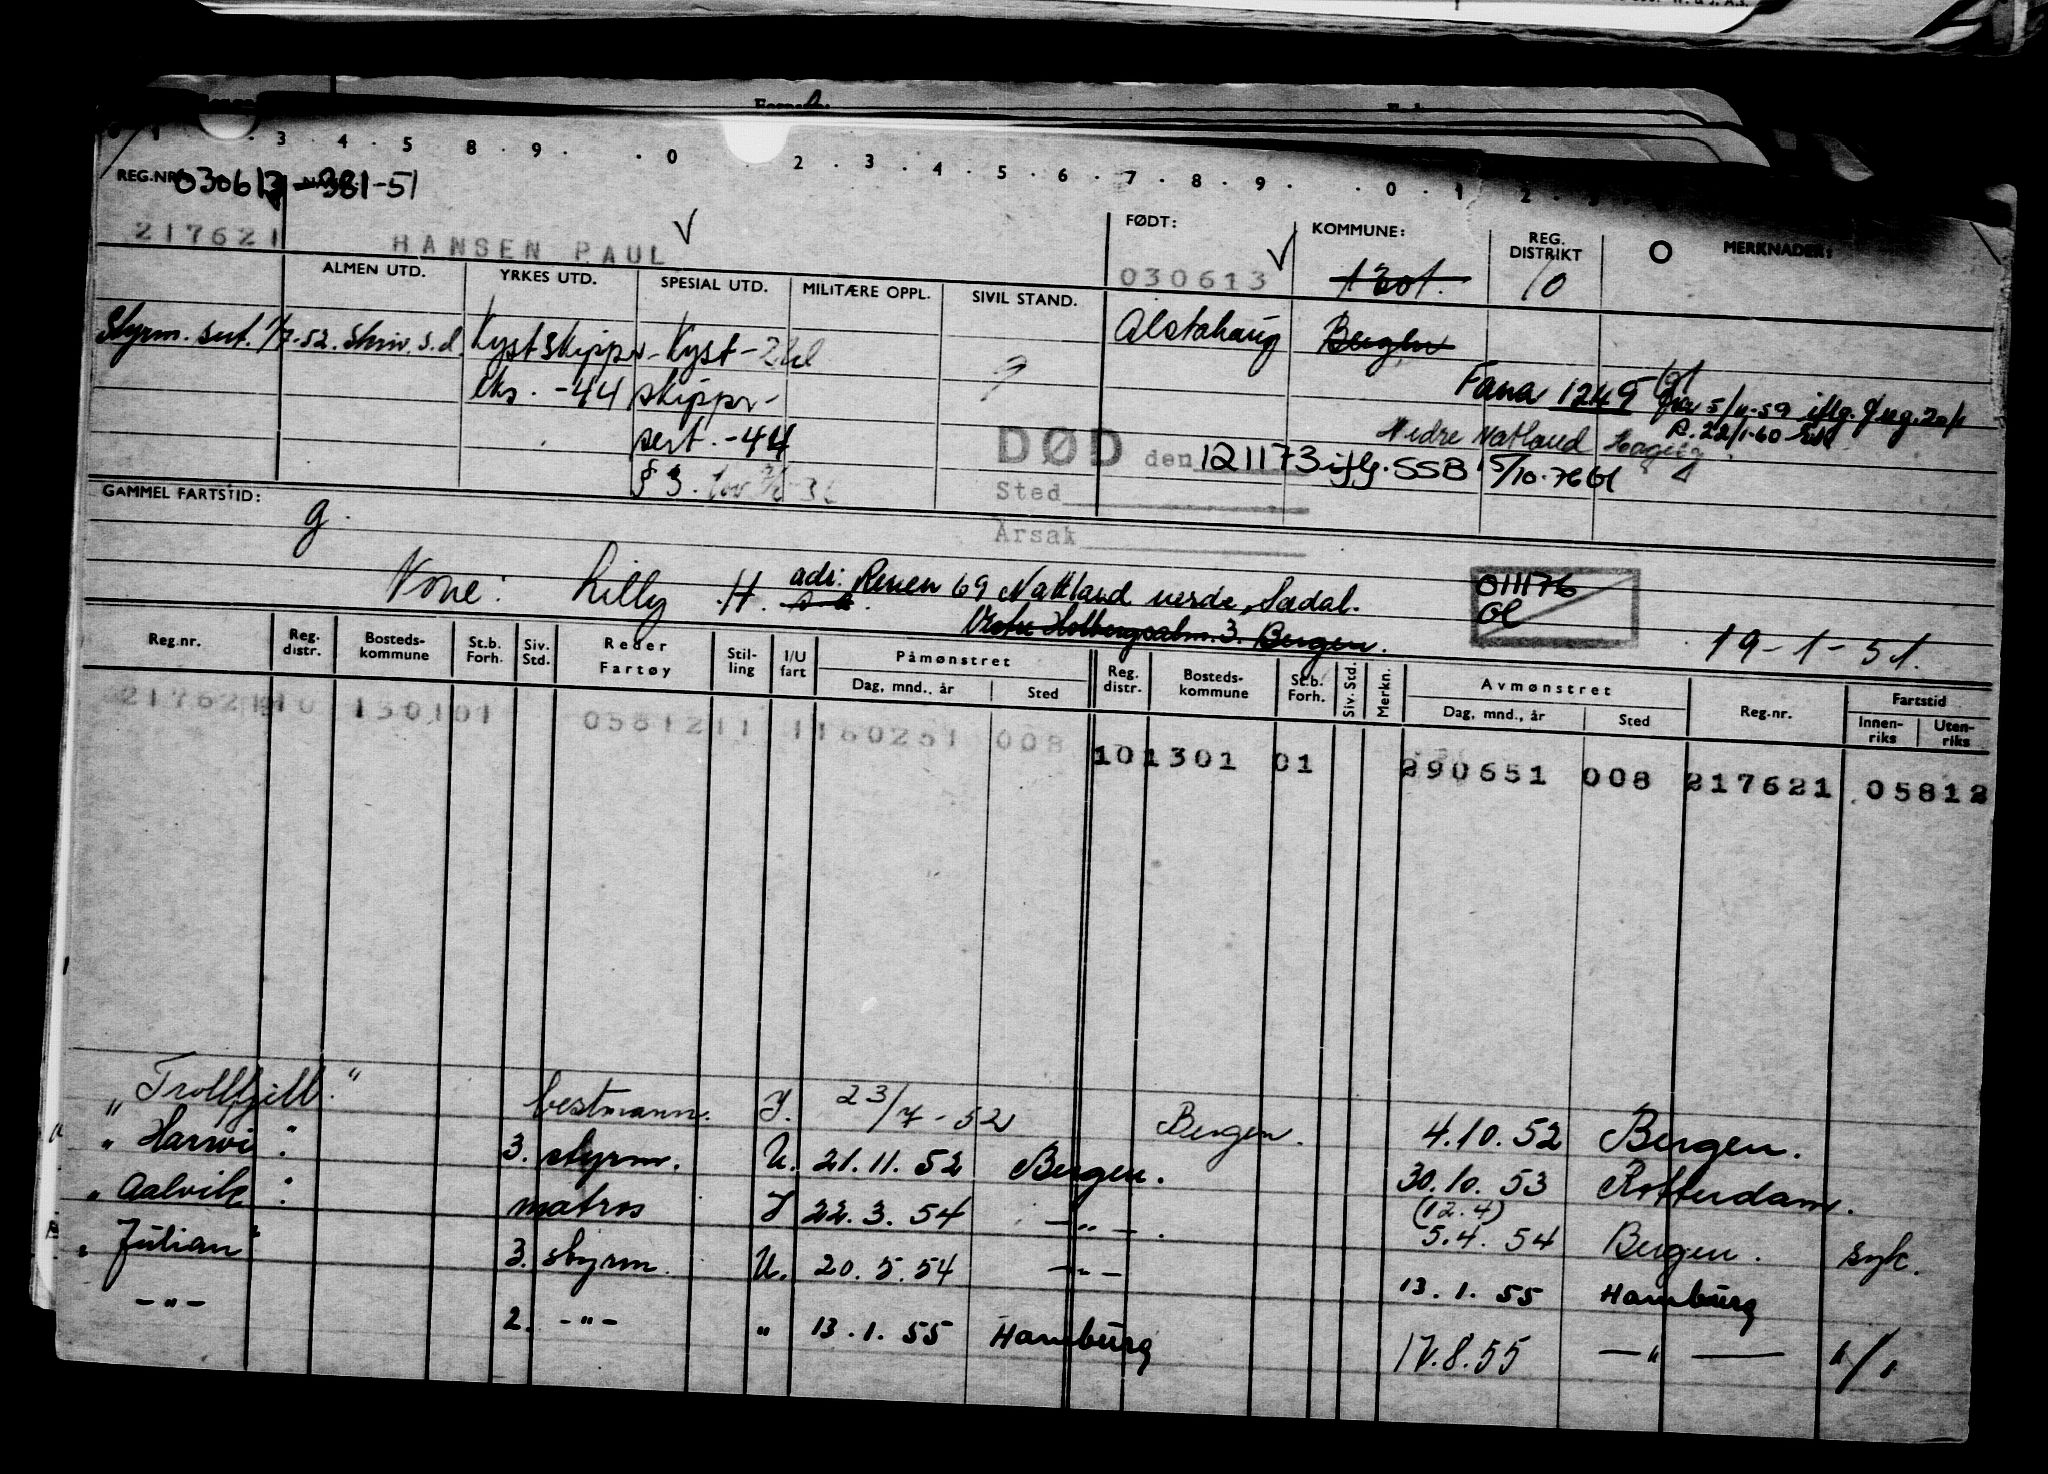 REG.NR. 030613-381-51
217621 HANSEN PAUL
FØDT: KOMMUNE: REG. DISTRIKT MERKNADER:
030613 1301. 10
ALMEN UTD. YRKES UTD. SPESIAL UTD. MILITÆRE OPPL. SIVIL STAND.
Styrm. sert. 1/7-52. Skriv. s.d. Kystskippr. Kyst- Alstahaug Bergen
eks. -44 skippr- g Fana 1249
sert. -44 Nedre Natland
DØD den 121173 iflg. SSB 5/10-76
§ 3. lov
Sted
Årsak
GAMMEL FARTSTID:
g.
Kone: Lilly H. adr: Renen 69 Nattland nedre, Sædal.
Holbergsalm. 3. Bergen.
011176
Gl
19-1-51.
Reg.nr. Reg. distr. Bosteds-kommune St.b. Forh. Siv. Std. Reder Fartøy Stil-ling I/U fart Påmønstret Reg. distr. Bosteds-kommune St.b. Forh. Siv. Std. Merkn. Avmønstret Reg.nr. Fartstid
Dag, mnd., år Sted Dag, mnd., år Sted Innen-riks Uten-riks
217621 10 130101 0581211 1160251 008
101301 01 290651 008 217621 05812
"Trollfjell." bestmann. I. 23/7-52 Bergen. 4.10.52 Bergen.
"Harwi" 3. styrm. U. 21.11.52 Bergen. 30.10.53 Rotterdam.
"Aalvik" matros I 22.3.54 -"-. (12.4) 5.4.54 Bergen. syk.
"Julian" 3. styrm. U. 20.5.54 -"- 13.1.55 Hamburg
-"- 2. -"- " 13.1.55 Hamburg 17.8.55 -"-